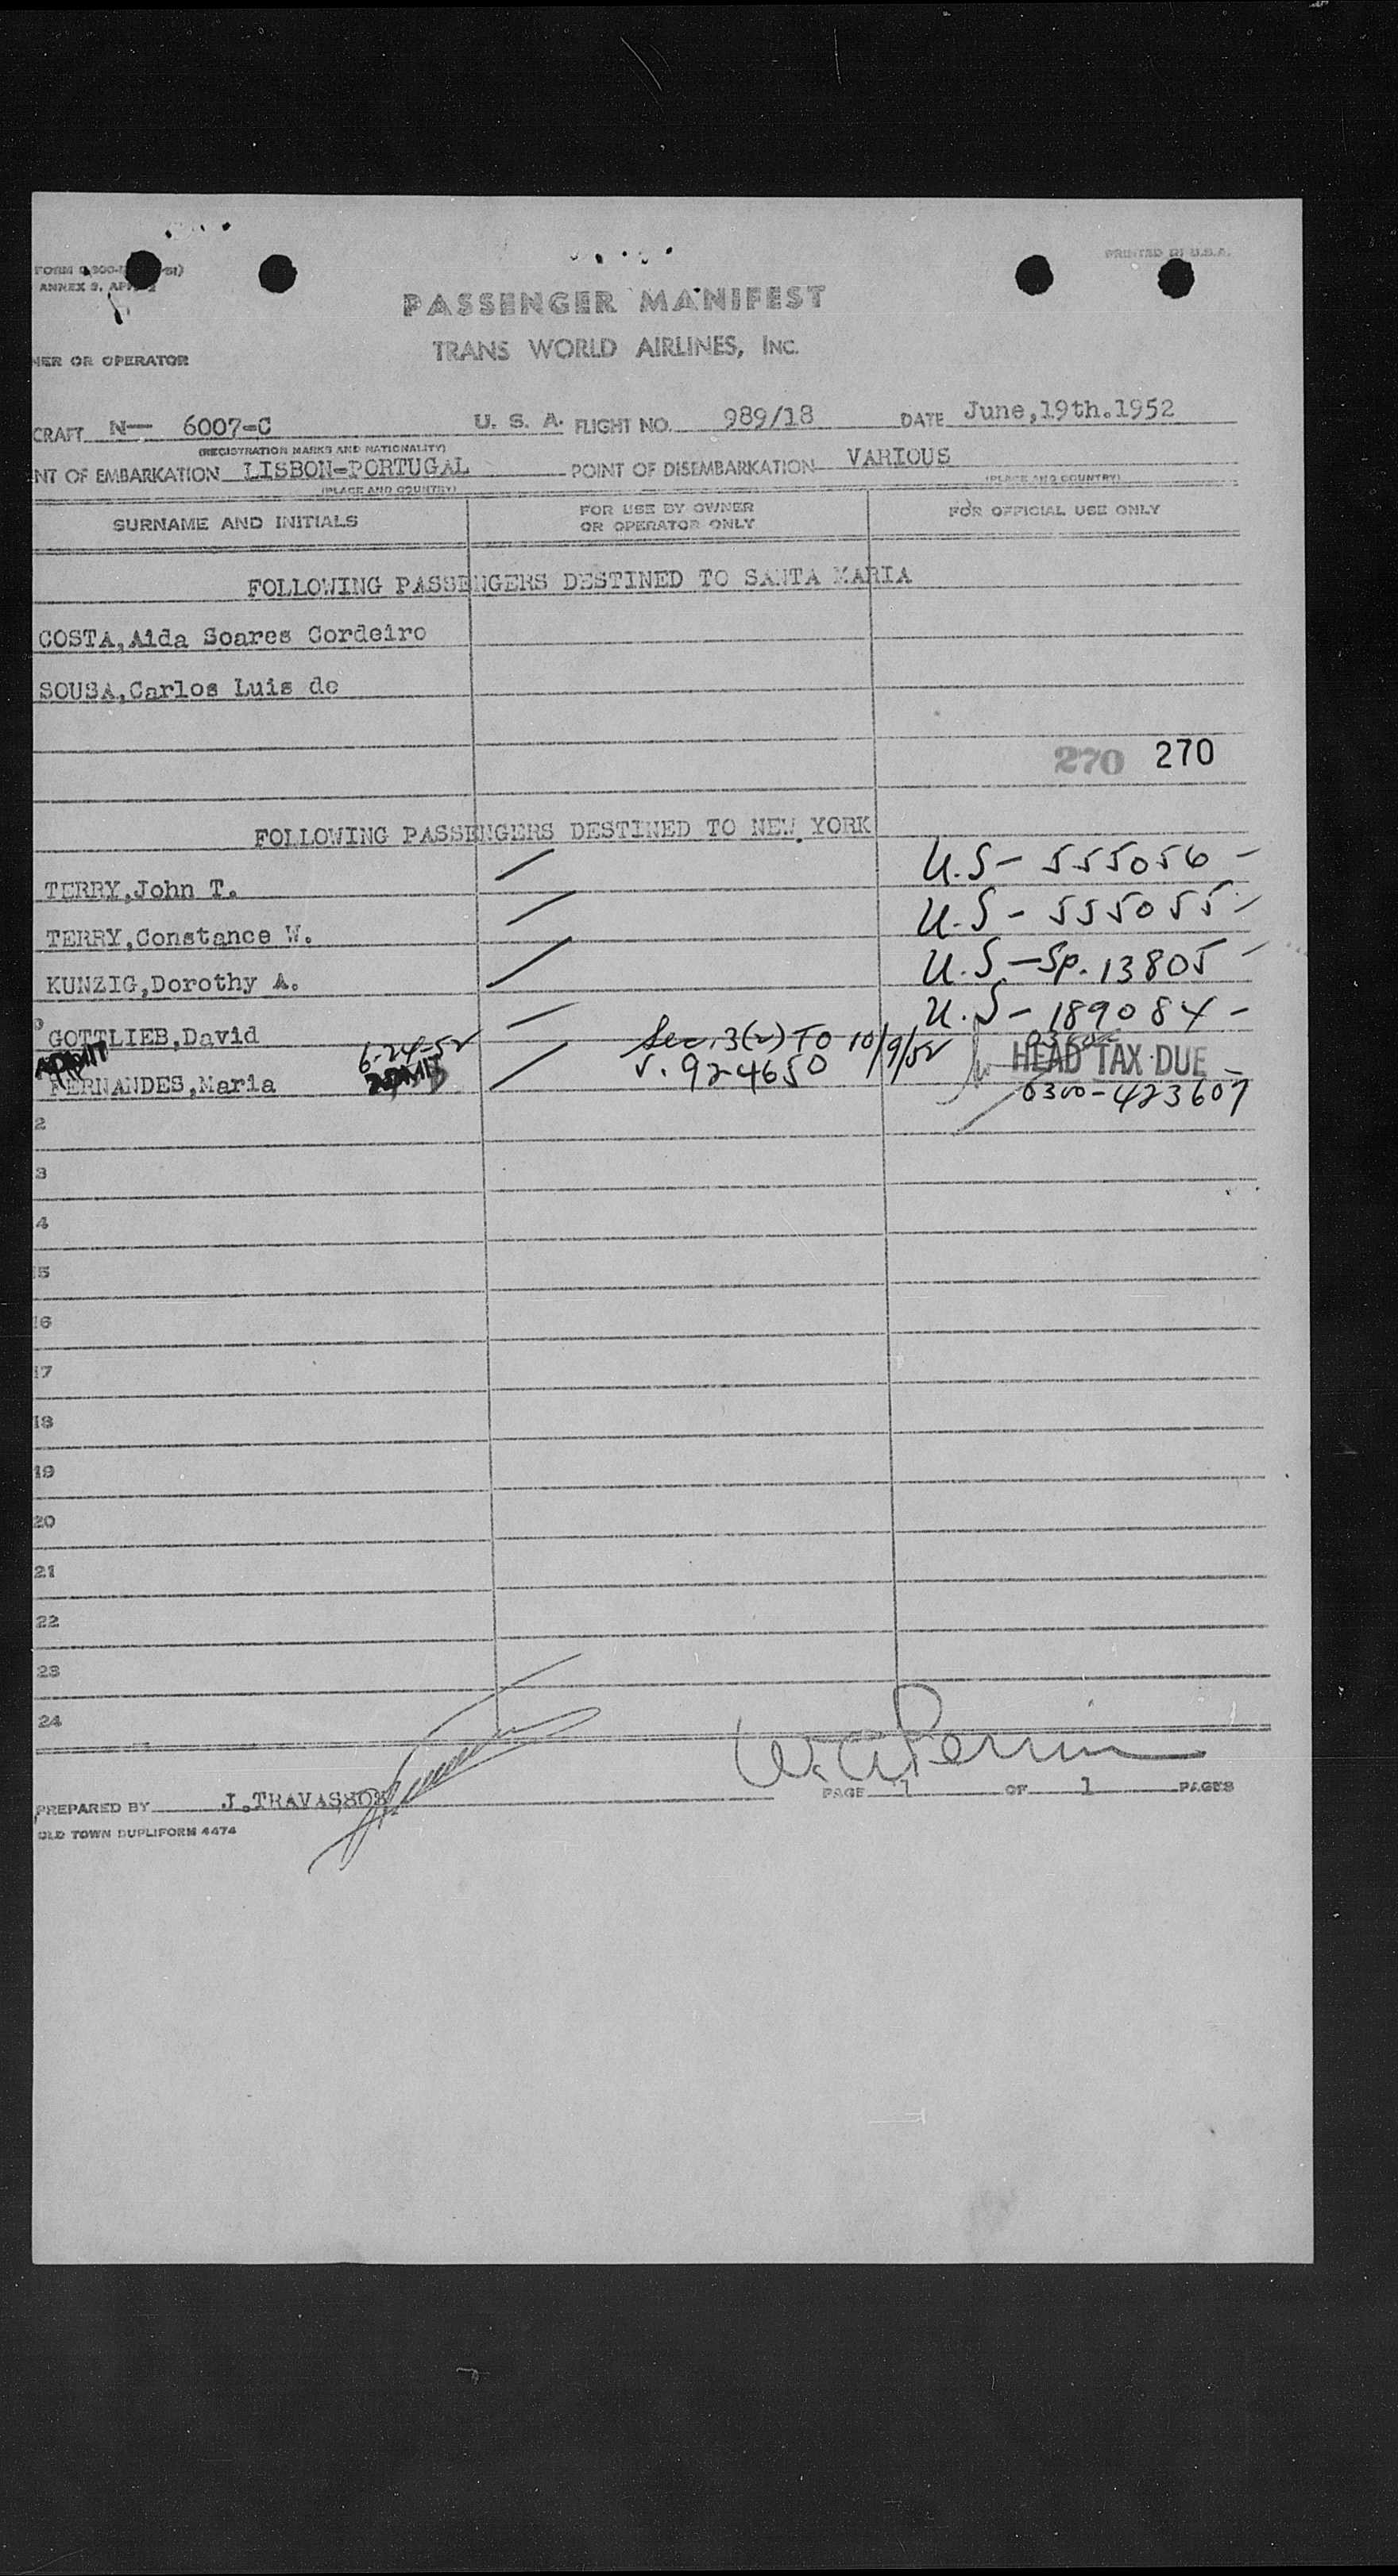 PRINTED IN U.S.A.
ANNEX 9,
PASSENGER MANIFEST
TRANS WORLD AIRLINES, INC.
NER OR OPERATOR
CRAFT N— 6007-C U. S. A. FLIGHT NO. 989/18 DATE June,19th.1952
(REGISTRATION MARKS AND NATIONALITY)
NT OF EMBARKATION LISBON-PORTUGAL POINT OF DISEMBARKATION VARIOUS
(PLACE AND COUNTRY) (PLACE AND COUNTRY)
SURNAME AND INITIALS FOR USE BY OWNER OR OPERATOR ONLY FOR OFFICIAL USE ONLY
FOLLOWING PASSENGERS DESTINED TO SANTA MARIA
COSTA,Aida Soares Cordeiro
SOUSA,Carlos Luis de
270 270
FOLLOWING PASSENGERS DESTINED TO NEW YORK
TERRY,John T. U.S- 555056 -
TERRY,Constance W. U.S- 555055-
KUNZIG,Dorothy A. U.S-Sp. 13805 -
GOTTLIEB,David U.S- 189084 -
ADMIT 6-24-52 Sec. 3(2) TO 10/9/52 HEAD TAX DUE
FERNANDES,Maria ADMIT V. 924650 0300-423607
2
3
4
5
6
17
18
19
20
21
22
23
24
W.A. Perrin
PREPARED BY J.TRAVASSOS PAGE 1 OF 1 PAGES
OLD TOWN DUPLIFORM 4474